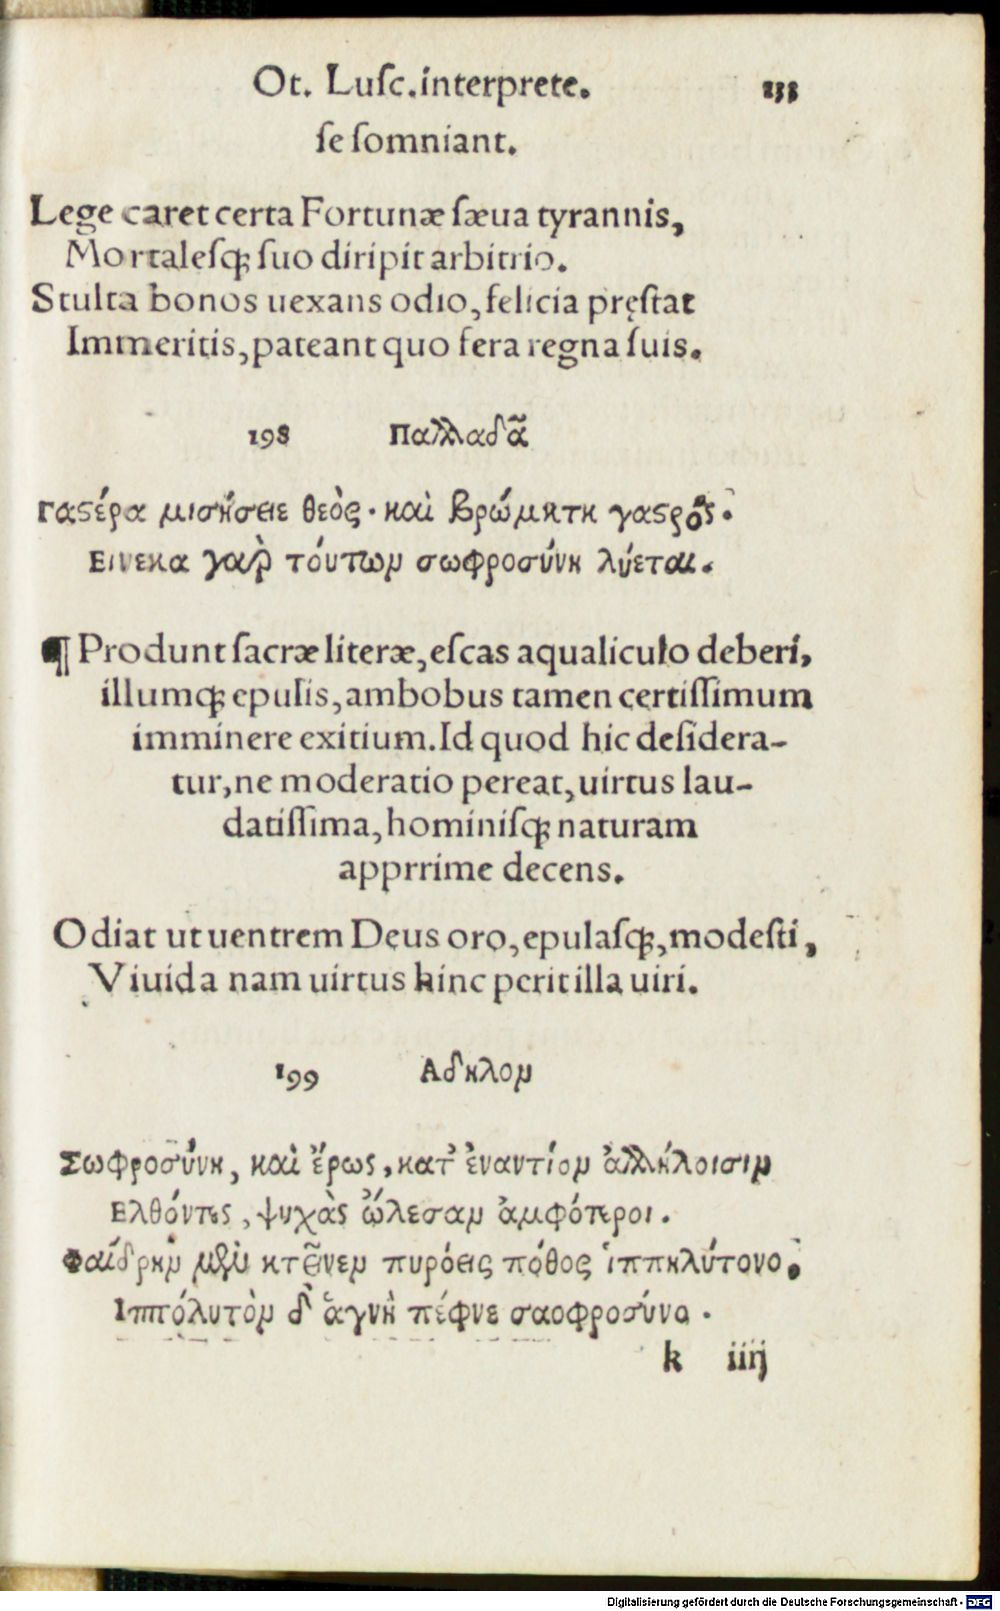 Ot. Luſc. interprete. 133
ſe ſomniant.
Lege caret certa Fortunæ ſæua tyrannis,
Mortaleſq; ſuo diripit arbitrio.
Stulta bonos uexans odio, felicia pręſtat
Immeritis, pateant quo fera regna ſuis.
198 Παλλαδᾶ
Γαςέρα μισήσειε θεὸς. καὶ βρώματα γαςρός.
Εινεκα γαρ τούτων σωφροσύνη λύεται.
¶ Produnt ſacræ literæ, eſcas aqualiculo deberi,
illumq; epulis, ambobus tamen certiſſimum
imminere exitium. Id quod hic deſidera-
tur, ne moderatio pereat, uirtus lau-
datiſſima, hominiſq; naturam
apprrime decens.
Odiat ut uentrem Deus oro, epulaſq;, modeſti,
Viuida nam uirtus hinc perit illa uiri.
199 Αδηλον
Σωφροσύνη, καὶ ἔρως, κατ' ἐναντίον ἀλλήλοισιν
Ελθόντες, ψυχὰς ὤλεσαν ἀμφότεροι.
Φαίδρην μὲν κτεῖνεν πυρόεις πόθος ἱππολύτοιο,
Ιππόλυτὸν δ' ἁγνὴ πέφνε σαοφροσύνα.
k iiij
Digitalisierung gefördert durch die Deutsche Forschungsgemeinschaft - DFG